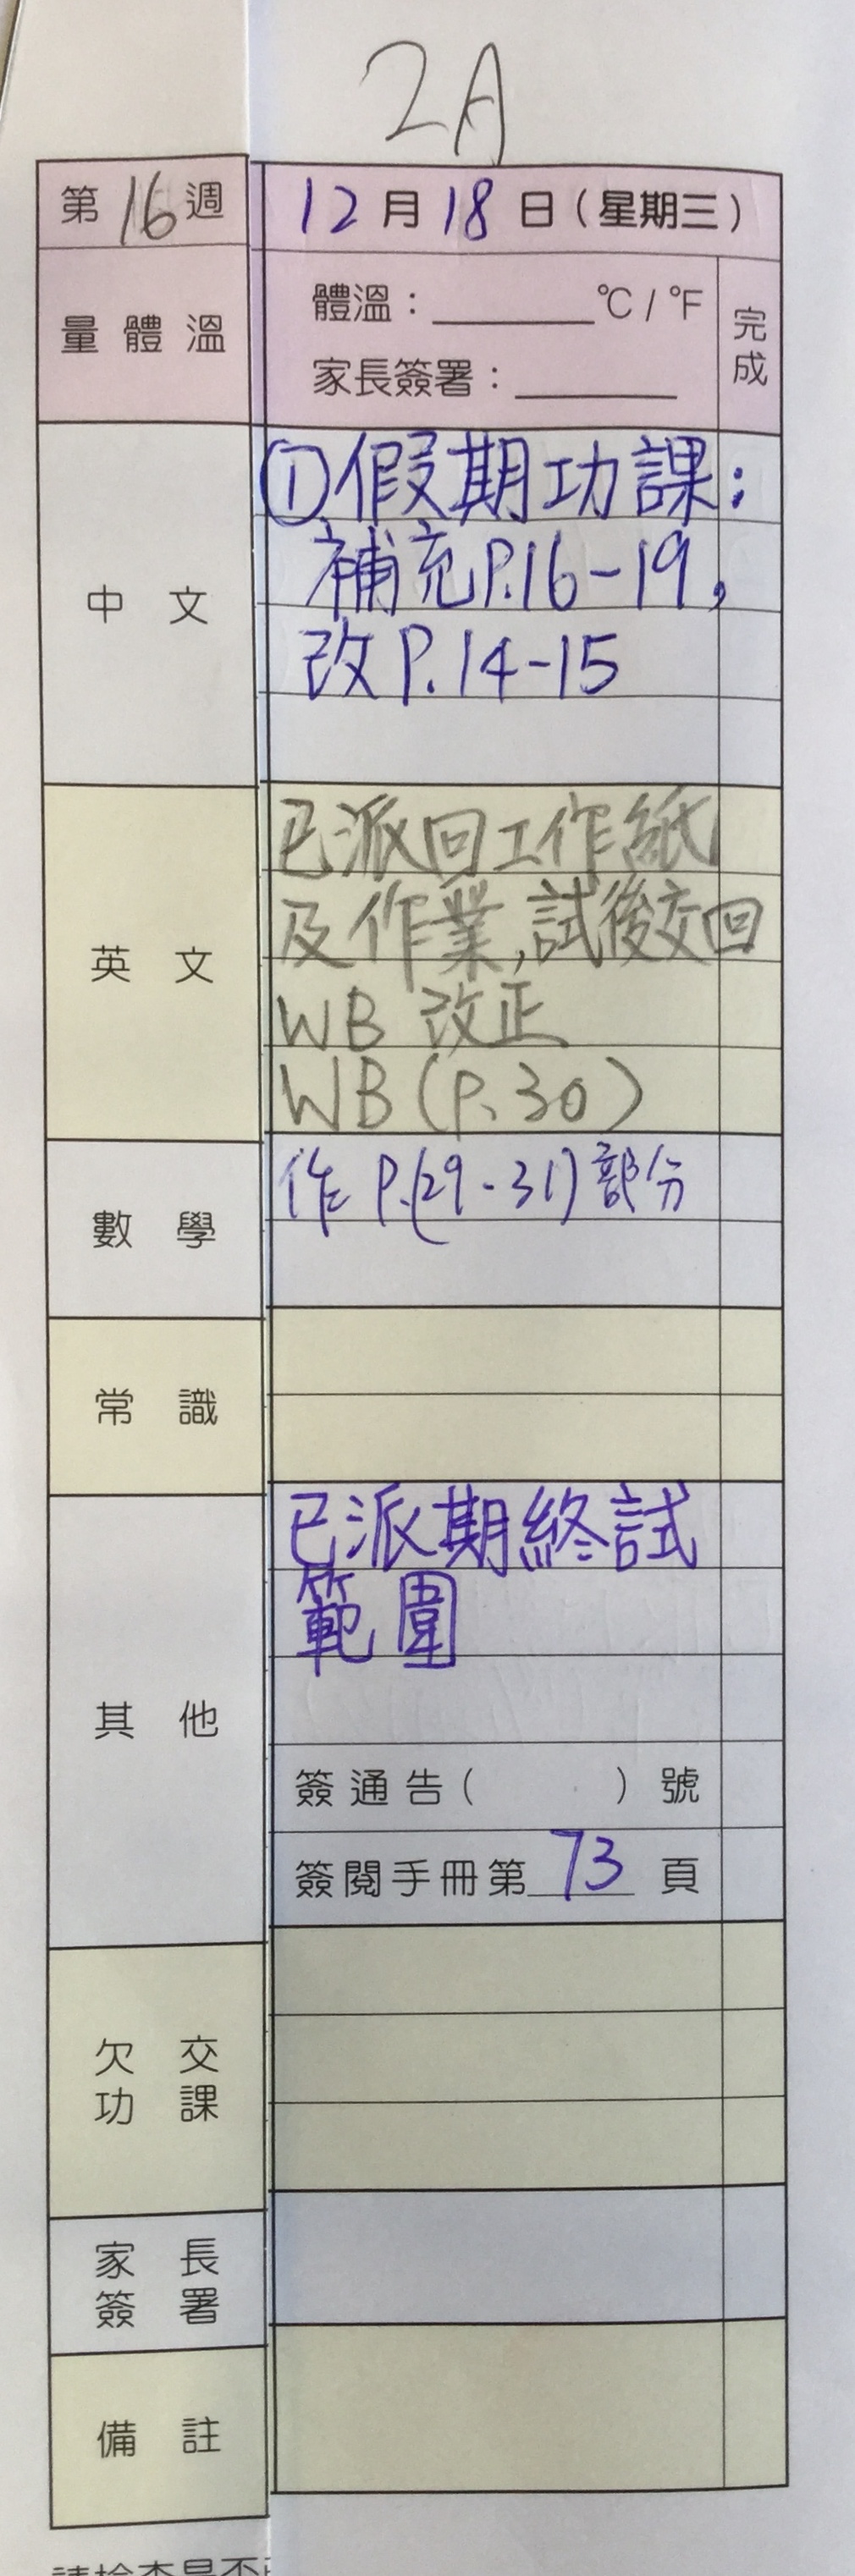 2A
第16週
12月18日(星期三)
量體溫
體溫：______°C / °F
家長簽署：______
完成
中文
①假期功課：
補充P.16-19,
改P.14-15
英文
已派回工作紙
及作業,試後交回
WB 改正
WB (P.30)
數學
作 P.(29-31) 部分
常識
其他
已派期終試
範圍
簽通告( )號
簽閱手冊第73頁
欠交
功課
家長
簽署
備註